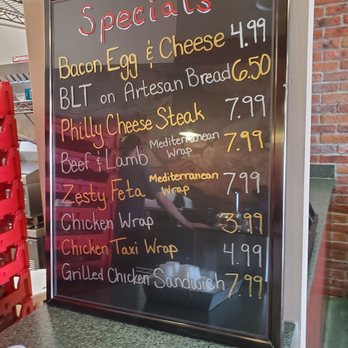 Specials
Bacon Egg & Cheese 4.99
BLT on Artesan Bread 6.50
Philly Cheese Steak 7.99
Beef & Lamb Mediterranean Wrap 7.99
Zesty Feta Mediterranean Wrap 7.99
Chicken Wrap 3.99
Chicken Taxi Wrap 4.99
Grilled Chicken Sandwich 7.99